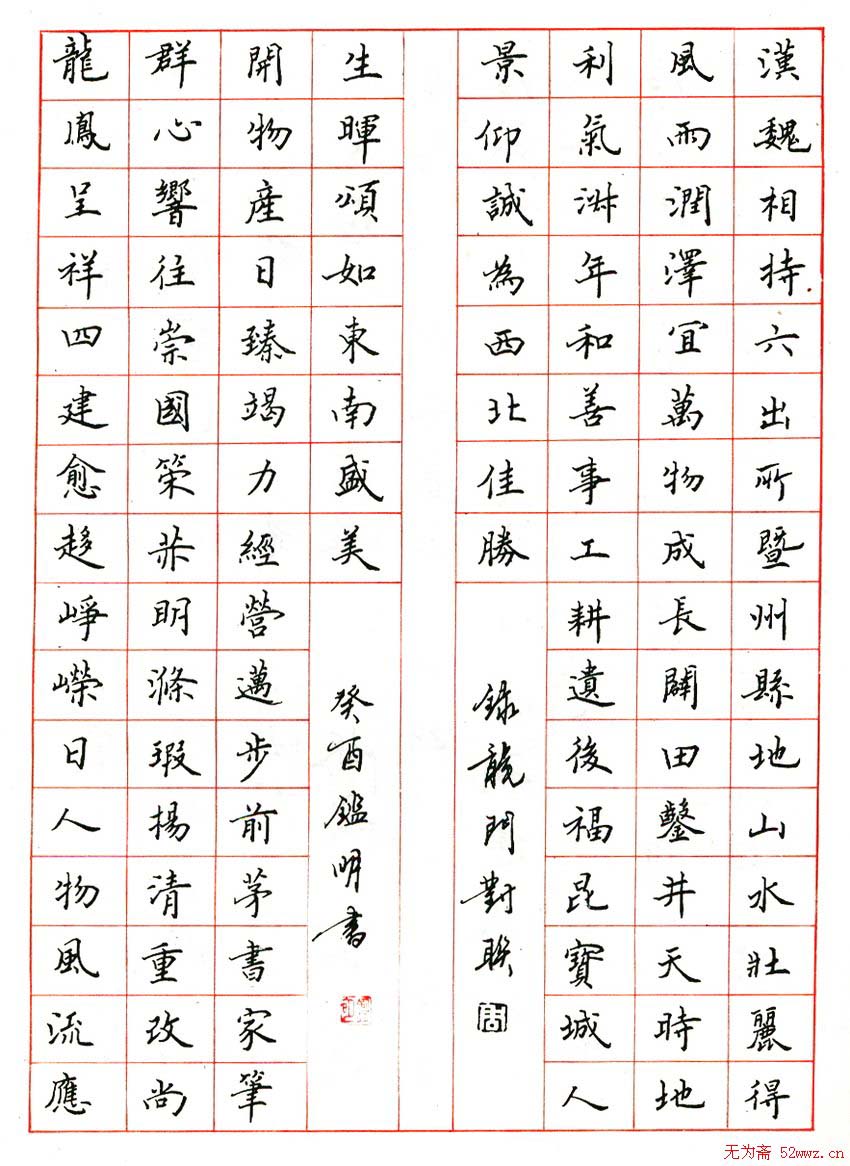 漢魏相持六出所暨州縣地山水壯麗得
風雨潤澤宜萬物成長闢田鑿井天時地
利氣淑年和善事工耕遺後福昆寶城人
景仰誠為西北佳勝
錄龍門對聯
龍鳳呈祥四建愈趍崢嶸日人物風流應
群心響往崇國策明滌瑕揚清重改尚
開物產日臻竭力經營邁步前茅書家筆
生暉頌如東南盛美
癸酉鑑明書
无为斋 52wwz.cn